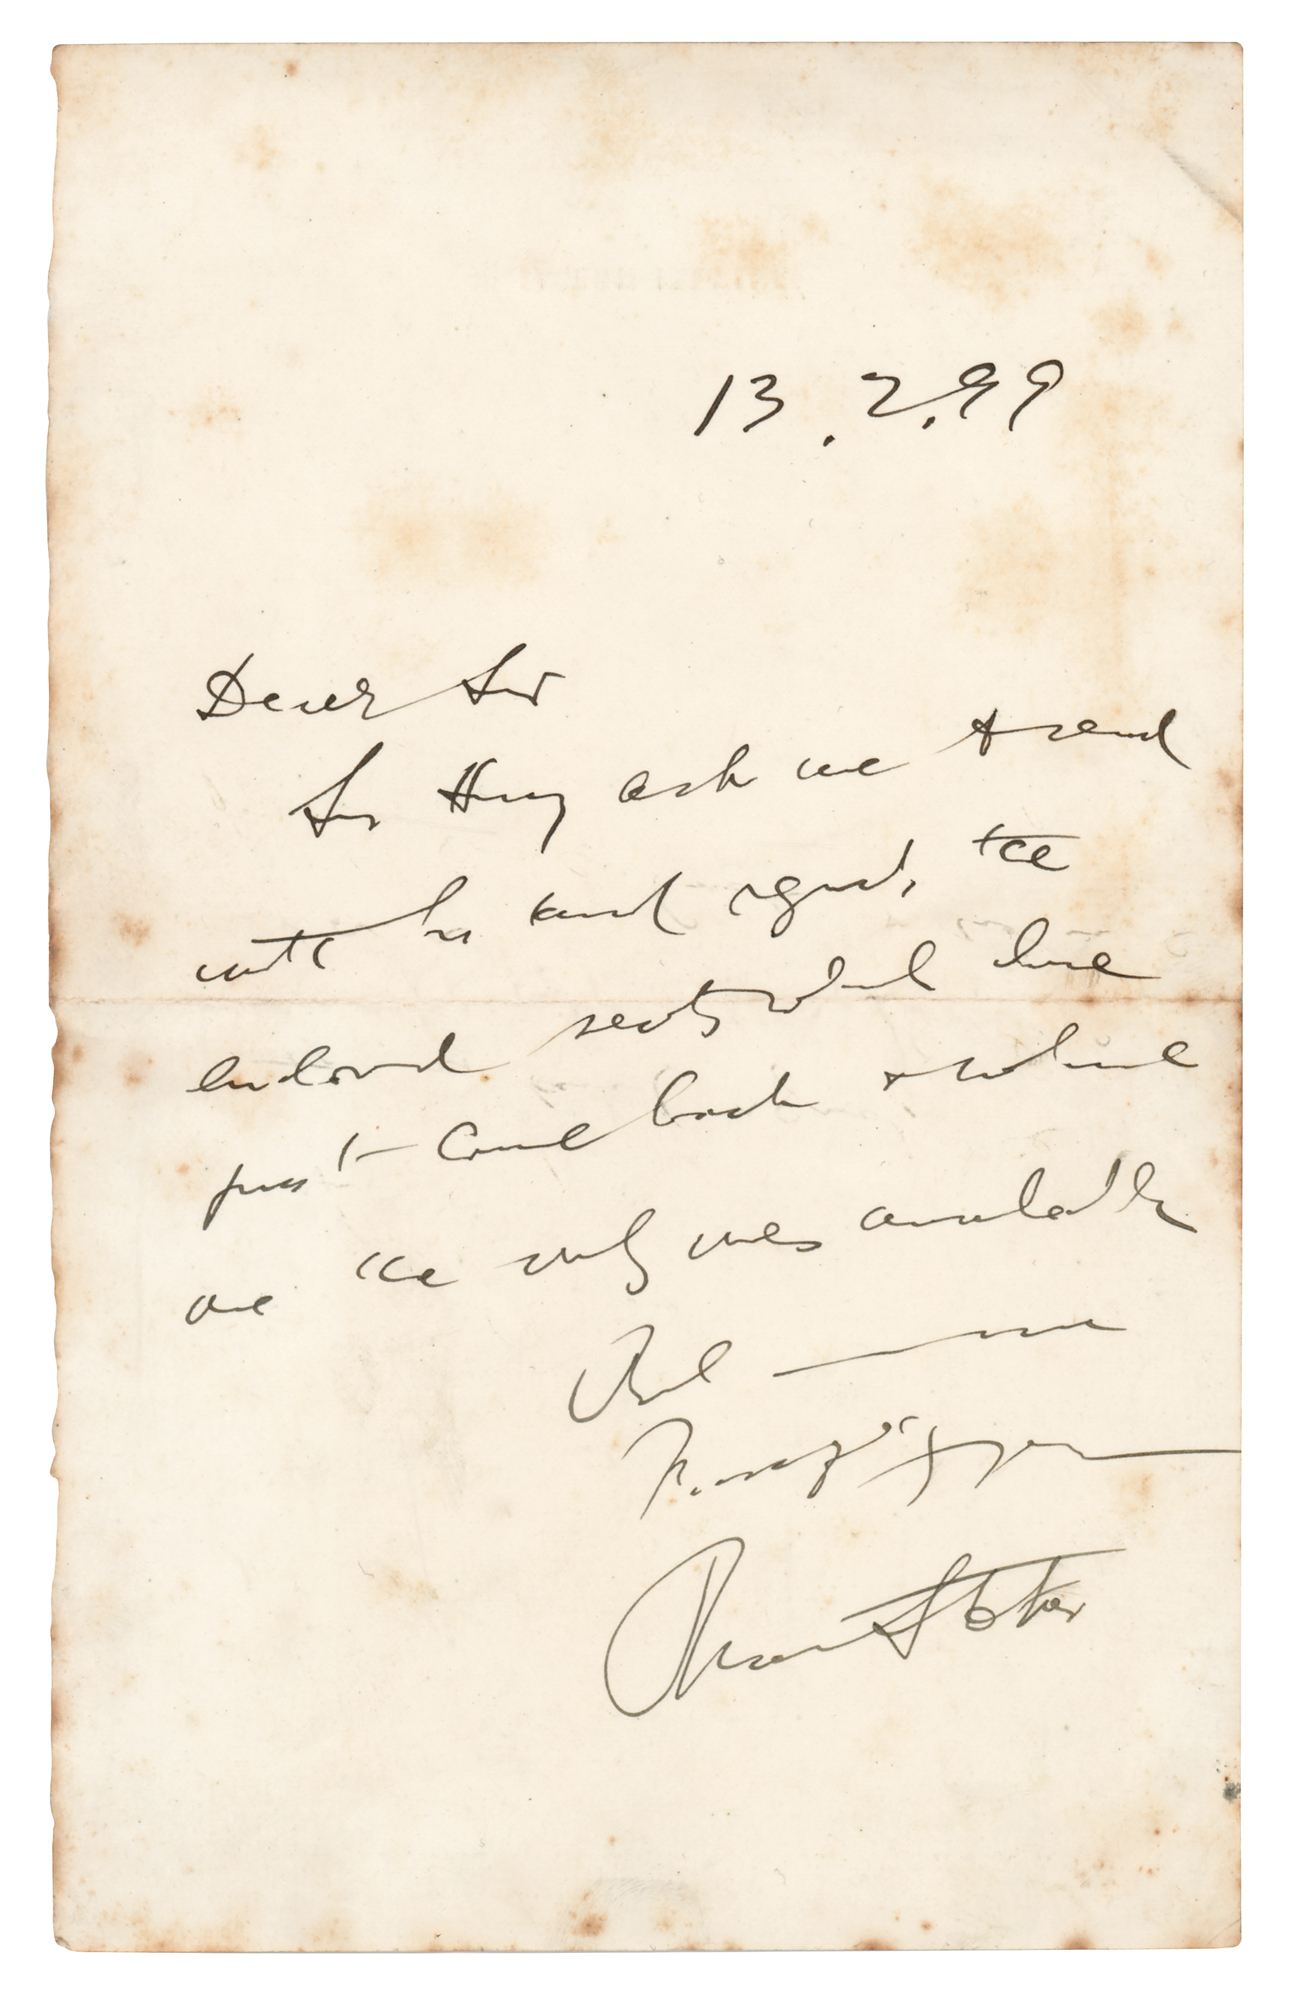 13.2.99
Dear Sir
Sir Henry asks me to send
with his kind regards, the
enclosed seats which have
just come back & which
are the only ones available
Yours
Bram Stoker